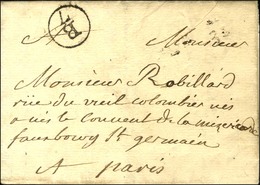 B
A Monsieur
Monsieur Robillard
rüe du vieil colombier vis
a vis le Convent de la misericorde
fauxbourg St germain
A paris